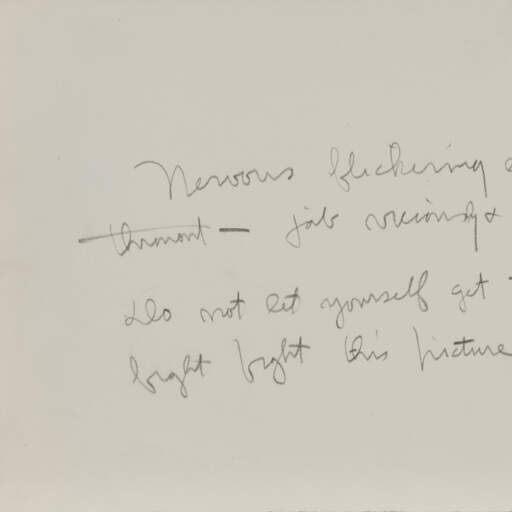 Nervous flickering
thruout — jab viciously &
Do not let yourself get
fight fight this picture